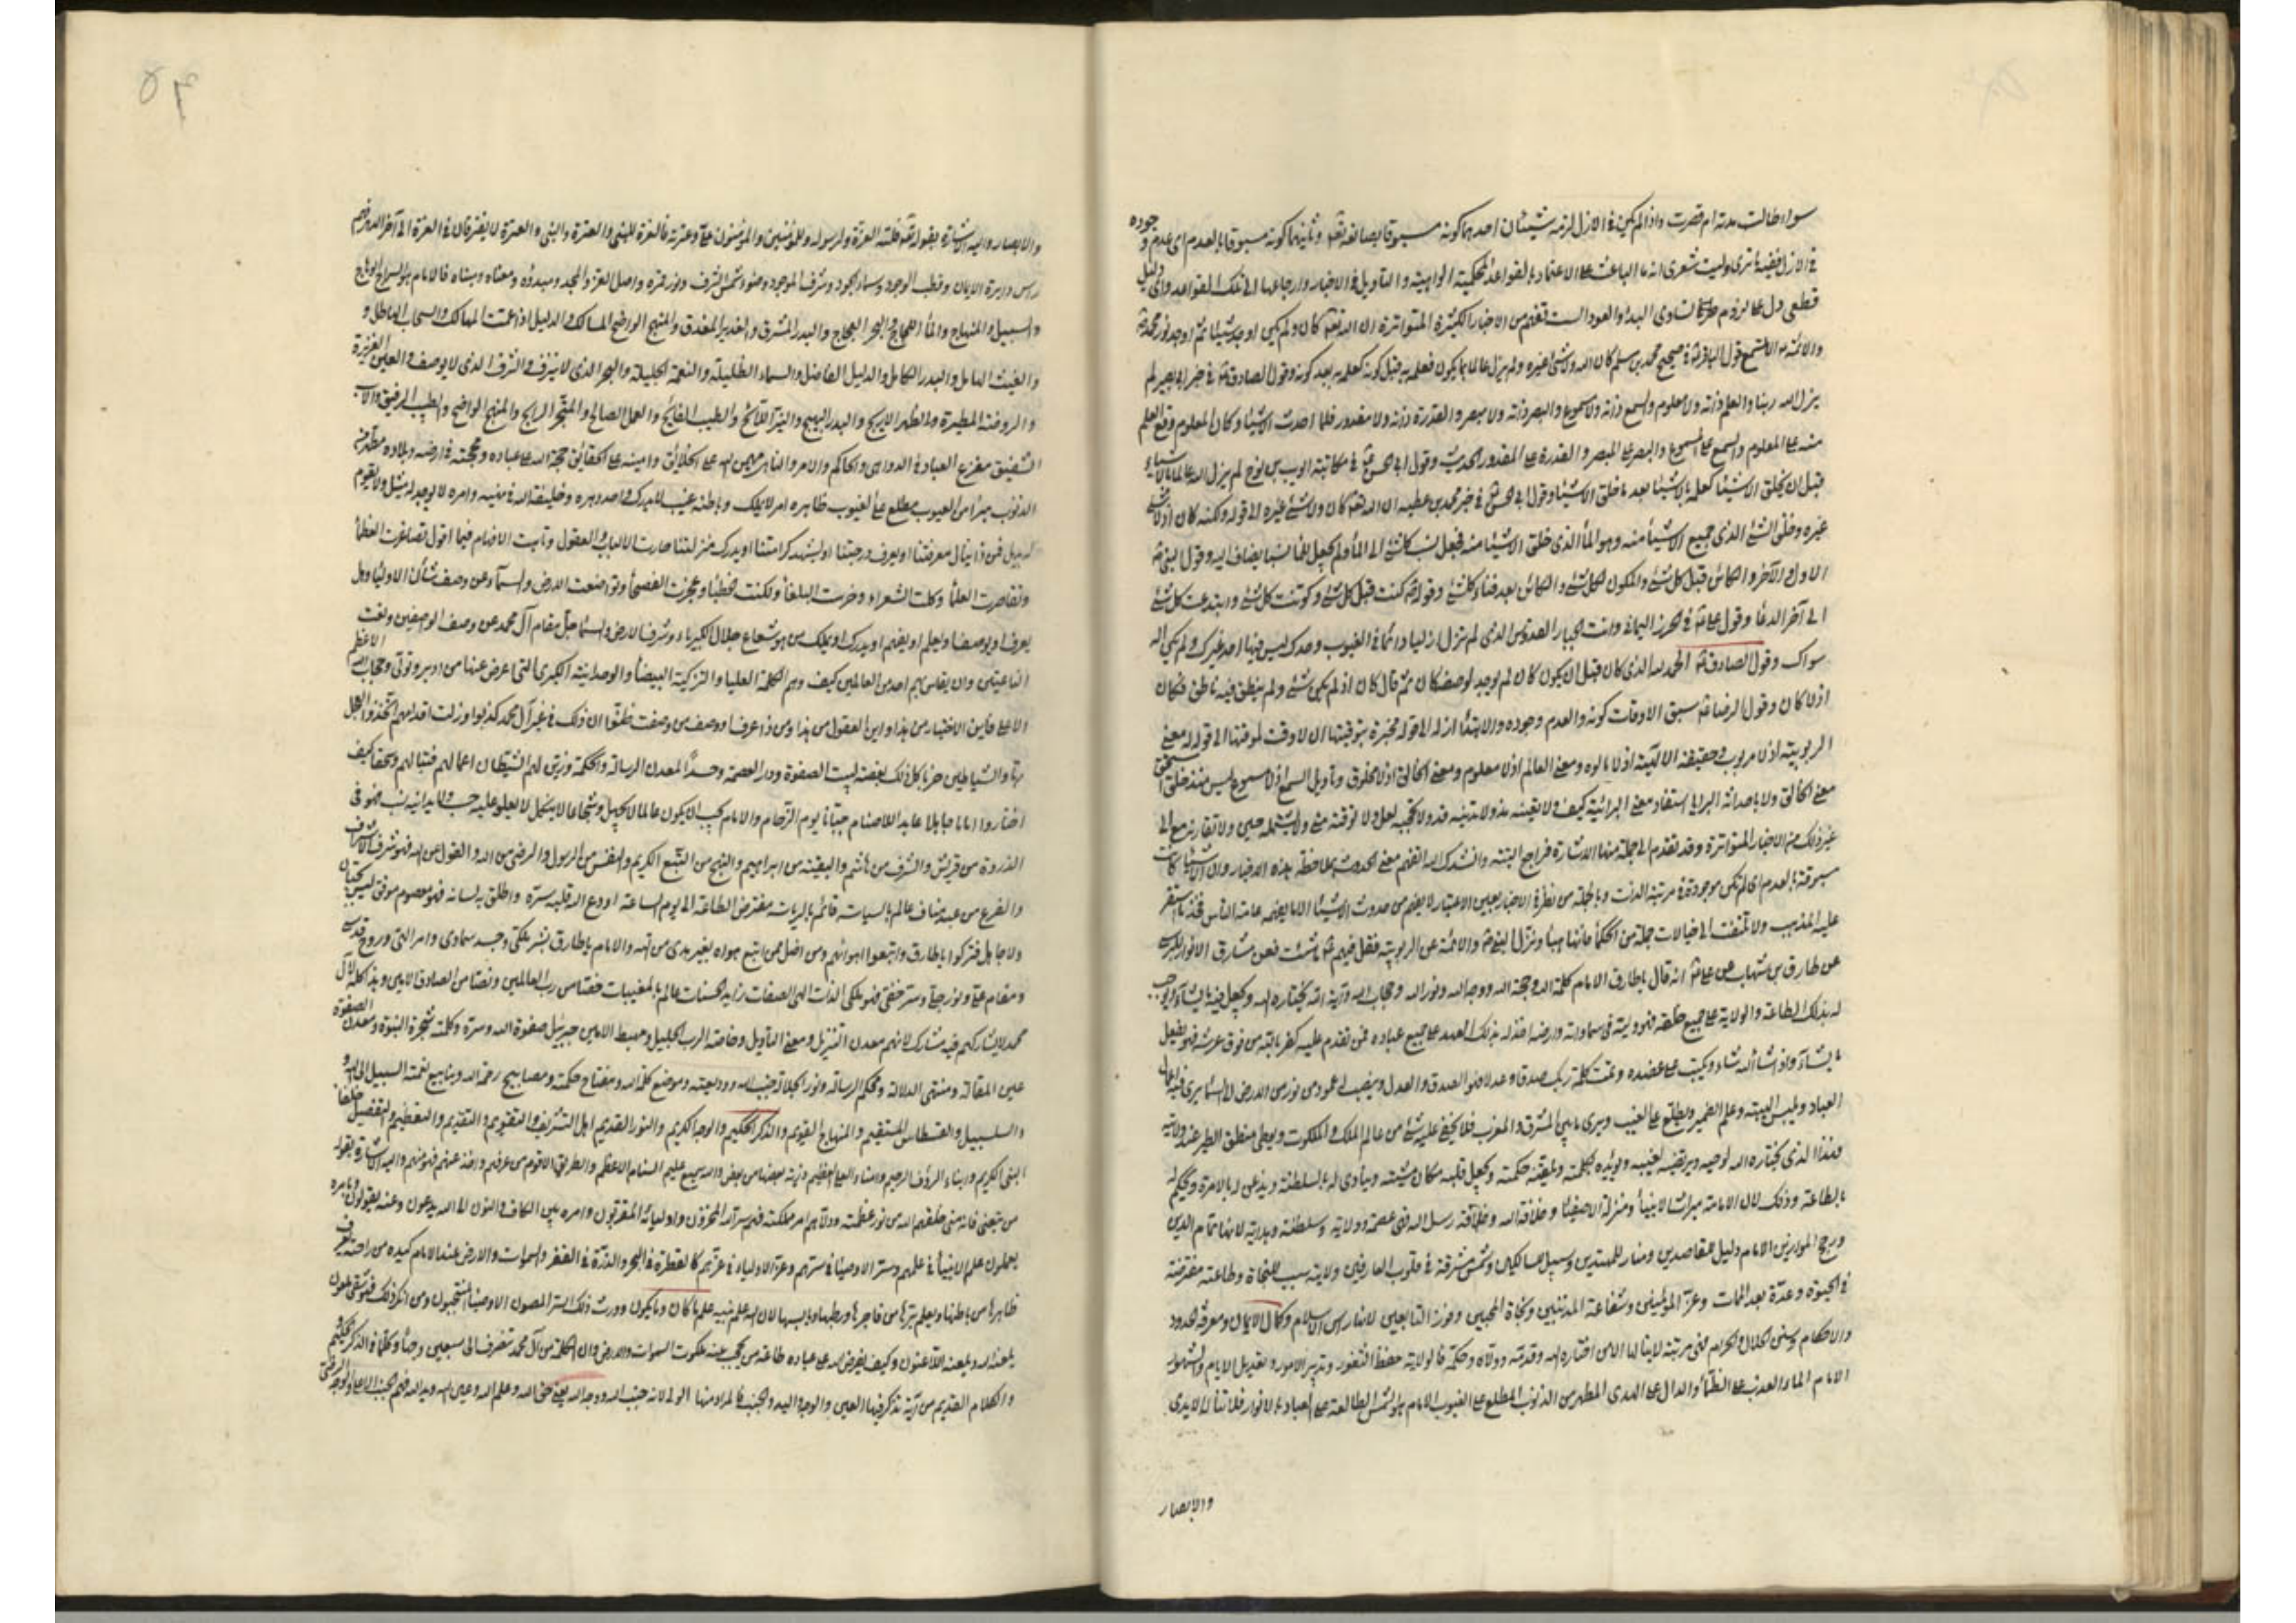 سواء طالت مدته ام قصرت واذا لم يكن في الازل لزمه شيئان احدهما كونه مسبوقا بصانعه تعالى وثانيهما كونه مسبوقا بالعدم اى عدم وجوده
في الازل ففيه ما ترى وليت شعرى انه ما الباعث على الاعتماد بالقواعد الحكمية الواهية والتأويل في الاخبار وارجاعها الى تلك القواعد واى دليل
قطعى دل على لزوم تساوى البدء والعود الست تفهم من الاخبار الكثيرة المتواترة ان الله تعالى كان ولم يكن اوجد شيئا ثم اوجد نور محمد
والائمة الا تسمع قول الباقر في صحيح محمد بن مسلم كان الله ولا شئ غيره ولم يزل عالما بما يكون فعلمه به قبل كونه كعلمه به بعد كونه وقول الصادق في خبر ابي بصير لم
يزل الله ربنا والعلم ذاته ولا معلوم والسمع ذاته ولا مسموع والبصر ذاته ولا مبصر والقدرة ذاته ولا مقدور فلما احدث الاشياء وكان المعلوم وقع العلم
منه على المعلوم والسمع على المسموع والبصر على المبصر والقدرة على المقدور الحديث وقول ابي الحسن في مكاتبة ايوب بن نوح لم يزل الله عالما بالاشياء
قبل ان يخلق الاشياء كعلمه بالاشياء بعد ما خلق الاشياء وقول ابي في خبر محمد بن عطيه ان الله تعالى كان ولا شئ غيره الى قوله ولكنه كان اذ لا شئ
غيره وخلق الشئ الذى جميع الاشياء منه وهو الماء الذى خلق الاشياء منه فجعل نسب كل شئ الى الماء ولم يجعل للماء نسبا يضاف اليه وقول النبى
الاول والآخر والكائن قبل كل شئ والمكون لكل شئ والكائن بعد فناء كل شئ وقوله كنت قبل كل شئ وكونت كل شئ وابتدعت كل شئ
الى آخر الدعا وقول على في الحرز اليمانى وانت الجبار القدوس الذى لم تزل ازليا دائما في الغيوب وحدك ليس فيها احد غيرك ولم يكن اله
سواك وقول الصادق الحمد لله الذى كان قبل ان يكون كان لم يوجد لوصفه كان ثم قال كان اذ لم يكن شئ ولم ينطق فيه ناطق فكان
اذ لا كان وقول الرضا سبق الاوقات كونه والعدم وجوده والابتداء ازله الى قوله مخبرة بتوقيتها ان لا وقت لموقتها الى قوله له معنى
الربوبية اذ لا مربوب وحقيقة الالهية اذ لا مالوه ومعنى العالم اذ لا معلوم ومعنى الخالق اذ لا مخلوق وتأويل السمع اذ لا مسموع ليس منذ خلق استحق
معنى الخالق ولا باحداثه البرايا استفاد معنى البرائية كيف ولا يغيبه مذ ولا تدنيه قد ولا تحجبه لعل ولا توقته متى ولا يشمله حين ولا تقارنه مع الى
غير ذلك من الاخبار المتواترة وقد تقدم الى جملة منها الاشارة فراجع البتة وانشدك الله اتفهم معنى الحدوث بملاحظة هذه الاخبار وان الاشياء كانت
مسبوقة بالعدم اى لم تكن موجودة في مرتبة الذات وبالجملة من نظر في الاخبار بعين الاعتبار لا يفهم من حدوث الاشياء الا ما يفهمه عامة الناس فخذ ما استقر
عليه المذهب ولا تلتفت الى خيالات جملة من الحكماء فانها هباء ونزل النبى والائمة عن الربوبية فقل فيهم ما شئت فعن مشارق الانوار للبرسى
عن طارق بن شهاب عن على انه قال يا طارق الامام كلمة الله وحجة الله ووجه الله ونور الله وحجاب الله وآية الله يختاره الله ويجعل فيه ما يشاء ويوجب
له بذلك الطاعة والولاية على جميع خلقه فهو وليه في سماواته وارضه اخذ له بذلك العهد على جميع عباده فمن تقدم عليه كفر بالله من فوق عرشه فهو يفعل
ما يشاء واذا شاء الله شاء ويكتب على عضده وتمت كلمة ربك صدقا وعدلا فهو الصدق والعدل وينصب له عمود من نور من الارض الى السماء يرى فيه اعمال
العباد ويلبس الهيبة وعلم الضمير ويطلع على الغيب ويرى ما بين المشرق والمغرب فلا يخفى عليه شئ من عالم الملك والملكوت ويعطى منطق الطير عند ولايته
فهذا الذى يختاره الله لوحيه ويرتضيه لغيبه ويؤيده بكلمته ويلقنه حكمته ويجعل قلبه مكان مشيته وينادى له بالسلطنة ويذعن له بالامرة ويحكم له
بالطاعة وذلك لان الامامة ميراث الانبياء ومنزلة الاصفياء وخلافة الله وخلافة رسل الله فهى عصمة وولاية وسلطنة وهداية لانها تمام الدين
ورجح الموازين الامام دليل للقاصدين ومنار للمهتدين وسبيل للسالكين وشمس مشرقة في قلوب العارفين ولايته سبب للنجاة وطاعته مفترضة
في الحيوة وعدة بعد الممات وعز المؤمنين وشفاعة المذنبين ونجاة المحبين وفوز التابعين لانها راس الاسلام وكمال الايمان ومعرفة الحدود
والاحكام وسنن الحلال والحرام فهى مرتبة لا ينالها الا من اختاره الله وقدمه وولاه وحكمه فالولاية حفظ الثغور وتدبير الامور وتعديل الايام والشهور
الامام الماء العذب على الظماء والدال على الهدى المطهر من الذنوب المطلع على الغيوب الامام هو الشمس الطالعة على العباد بالانوار فلا تناله الايدى
والابصار
والابصار واليه الاشارة بقوله تعالى فلله العزة ولرسوله وللمؤمنين والمؤمنون على وعترته فالعزة للنبى وللعترة والنبى والعترة لا يفترقان في العزة الى آخر الدهر فهم
راس دايرة الايمان وقطب الوجود وسماء الجود وشرف الموجود وضوء شمس الشرف ونور قمره واصل العز والمجد ومبدؤه ومعناه ومبناه فالامام هو السراج الوهاج
والسبيل والمنهاج والماء الثجاج والبحر العجاج والبدر المشرق والغدير المغدق والمنهج الواضح المسالك والدليل اذا عمت المهالك والسحاب الهاطل و
والغيث الهامل والبدر الكامل والدليل الفاضل والسماء الظليلة والنعمة الجليلة والبحر الذى لا ينزف والشرف الذى لا يوصف والعين الغزيرة
والروضة المطيرة والزهر الاريج والبدر البهيج والنير اللائح والطيب الفايح والعمل الصالح والمتجر الرابح والمنهج الواضح والطبيب الرفيق والاب
الشفيق مفزع العباد في الدواهى والحاكم والآمر والناهى مهيمن الله على الخلائق وامينه على الحقائق حجة الله على عباده ومحجته في ارضه وبلاده مطهر من
الذنوب مبرأ من العيوب مطلع على الغيوب ظاهره امر لا يملك وباطنه غيب لا يدرك واحد دهره وخليفة الله في نهيه وامره لا يوجد له مثل ولا يقوم
له بديل فمن ذا ينال معرفتنا او يعرف درجتنا او يشهد كرامتنا او يدرك منزلتنا حارت الالباب والعقول وتاهت الافهام فيما اقول تصاغرت العظماء
وتقاصرت العلماء وكلت الشعراء وخرست البلغاء ولكنت الخطباء وعجزت الفصحاء وتواضعت الارض والسماء عن وصف شأن الاولياء وهل
يعرف او يوصف او يعلم او يفهم او يدرك او يملك من هو شعاع جلال الكبرياء وشرف الارض والسماء جل مقام آل محمد عن وصف الواصفين ونعت
الناعتين وان يقاس بهم احد من العالمين كيف وهم الكلمة العليا والتزكية البيضاء والوحدانية الكبرى التى اعرض عنها من ادبر وتولى وحجاب الله الاعظم
الاعلى فاين الاختيار من هذا واين العقول من هذا ومن ذا عرف او وصف من وصفت ظنوا ان ذلك في غير آل محمد كذبوا وزلت اقدامهم اتخذوا العجل
ربا والشياطين حزبا كل ذلك بغضة لبيت الصفوة ودار العصمة وحسدا لمعدن الرسالة والحكمة وزين لهم الشيطان اعمالهم فتبا لهم وسحقا كيف
اختاروا اماما جاهلا عابدا للاصنام جبانا يوم الزحام والامام يجب ان يكون عالما لا يجهل وشجاعا لا ينكل لا يعلو عليه حسب ولا يدانيه نسب فهو في
الذروة من قريش والشرف من هاشم والبقية من ابراهيم والنهج من النبع الكريم والنفس من الرسول والرضى من الله والقول عن الله فهو شرف الاشراف
والفرع من عبد مناف عالم بالسياسة قائم بالرياسة مفترض الطاعة الى يوم الساعة اودع الله قلبه سره واطلق به لسانه فهو معصوم موفق ليس بجبان
ولا جاهل فتركوا يا طارق واتبعوا اهوائهم ومن اضل ممن اتبع هواه بغير هدى من الله والامام يا طارق بشر ملكى وجسد سماوى وامر الهى وروح قدسى
ومقام على ونور جلى وسر خفى فهو ملكى الذات الهى الصفات زايد الحسنات عالم بالمغيبات خصا من رب العالمين ونصا من الصادق الامين وهذا كله لآل
محمد لا يشاركهم فيه مشارك لانهم معدن التنزيل ومعنى التأويل وخاصة الرب الجليل ومهبط الامين جبرئيل صفوة الله وسره وكلمته شجرة النبوة ومعدن الصفوة
عين المقالة ومنتهى الدلالة ومحكم الرسالة ونور الجلالة جنب الله ووديعته وموضع كلمة الله ومفتاح حكمته ومصابيح رحمة الله وينابيع نعمته السبيل الى الله و
والسلسبيل والقسطاس المستقيم والمنهاج القويم والذكر الحكيم والوجه الكريم والنور القديم اهل التشريف والتقويم والتقديم والتعظيم والتفضيل خلفاء
النبى الكريم وابناء الرؤف الرحيم وامناء العلى العظيم ذرية بعضها من بعض والله سميع عليم السنام الاعظم والطريق الاقوم من عرفهم واخذ عنهم فهو منهم واليه الاشارة بقوله
من تبعنى فانه منى خلقهم الله من نور عظمته وولاهم امر مملكته فهم سر الله المخزون واولياؤه المقربون وامره بين الكاف والنون الى الله يدعون وعنه يقولون وبامره
يعملون علم الانبياء في علمهم وسر الاوصياء في سرهم وعز الاولياء في عزهم كالقطرة في البحر والذرة في القفر والسموات والارض عند الامام كيده من راحته يعرف
ظاهرها من باطنها ويعلم برها من فاجرها ورطبها ويابسها لان الله علم نبيه علم ما كان وما يكون وورث ذلك السر المصون الاوصياء المنتجبون ومن انكر ذلك فهو شقى ملعون
يلعنه الله ويلعنه اللاعنون وكيف يفرض الله على عباده طاعة من يحجب عنه ملكوت السموات والارض وان الكلمة من آل محمد تنصرف الى سبعين وجها وكلما في الذكر الحكيم و
والكلام القديم من آية تذكر فيها العين والوجه واليد والجنب فالمراد منها الولى لانه جنب الله ووجه الله يعنى حق الله وعلم الله وعين الله ويد الله فهم الجنب العلى والوجه الرضى